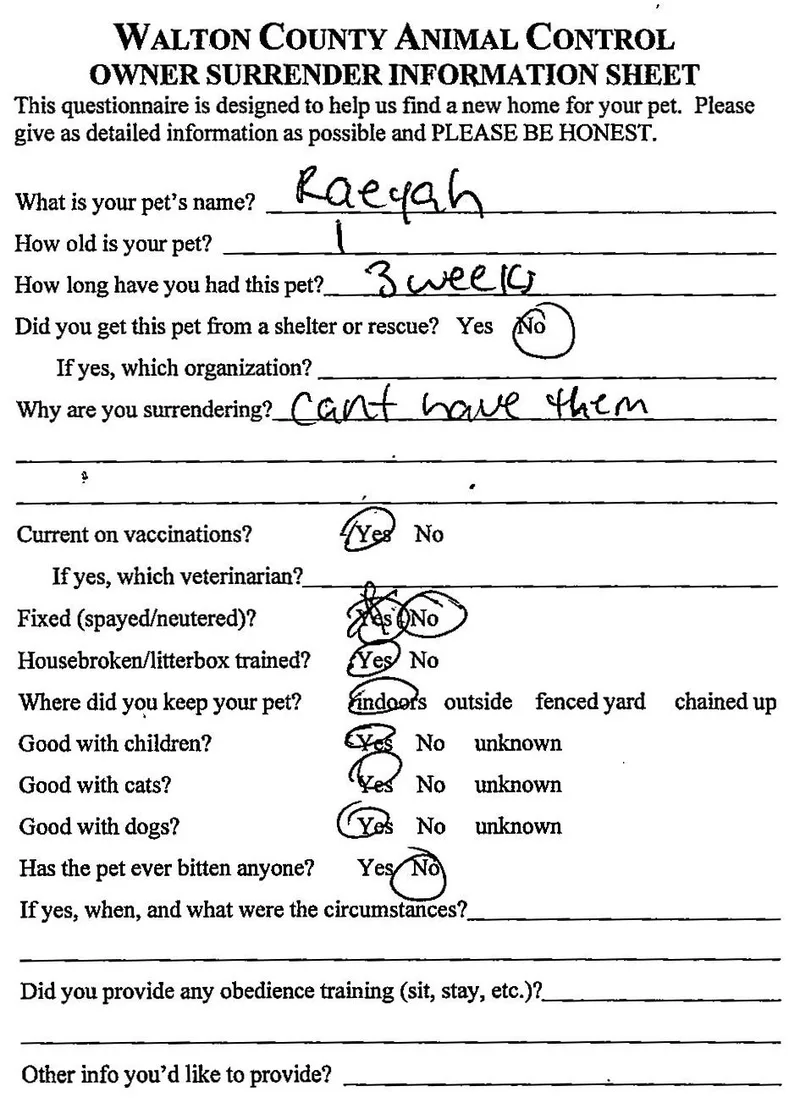 WALTON COUNTY ANIMAL CONTROL
OWNER SURRENDER INFORMATION SHEET
This questionnaire is designed to help us find a new home for your pet. Please
give as detailed information as possible and PLEASE BE HONEST.
What is your pet's name? Raeyah
How old is your pet? 1
How long have you had this pet? 3 weeks
Did you get this pet from a shelter or rescue? Yes No
If yes, which organization?
Why are you surrendering? cant have them
Current on vaccinations? Yes No
If yes, which veterinarian?
Fixed (spayed/neutered)? Yes No
Housebroken/litterbox trained? Yes No
Where did you keep your pet? indoors outside fenced yard chained up
Good with children? Yes No unknown
Good with cats? Yes No unknown
Good with dogs? Yes No unknown
Has the pet ever bitten anyone? Yes No
If yes, when, and what were the circumstances?
Did you provide any obedience training (sit, stay, etc.)?
Other info you'd like to provide?